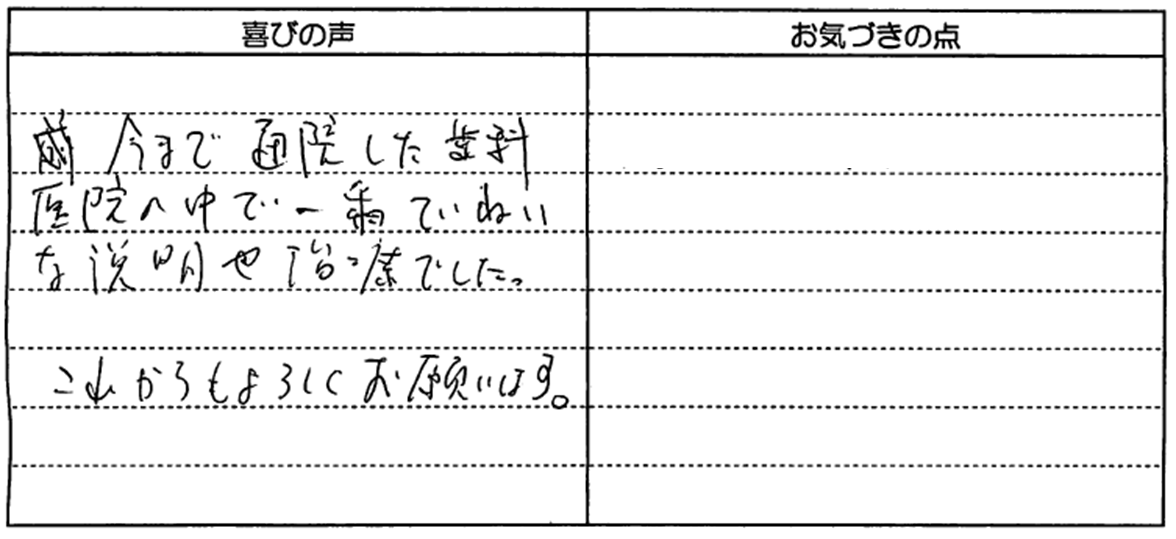 喜びの声
お気づきの点
今まで通院した歯科
医院の中で一番ていねい
な説明や治療でした。
これからもよろしくお願います。